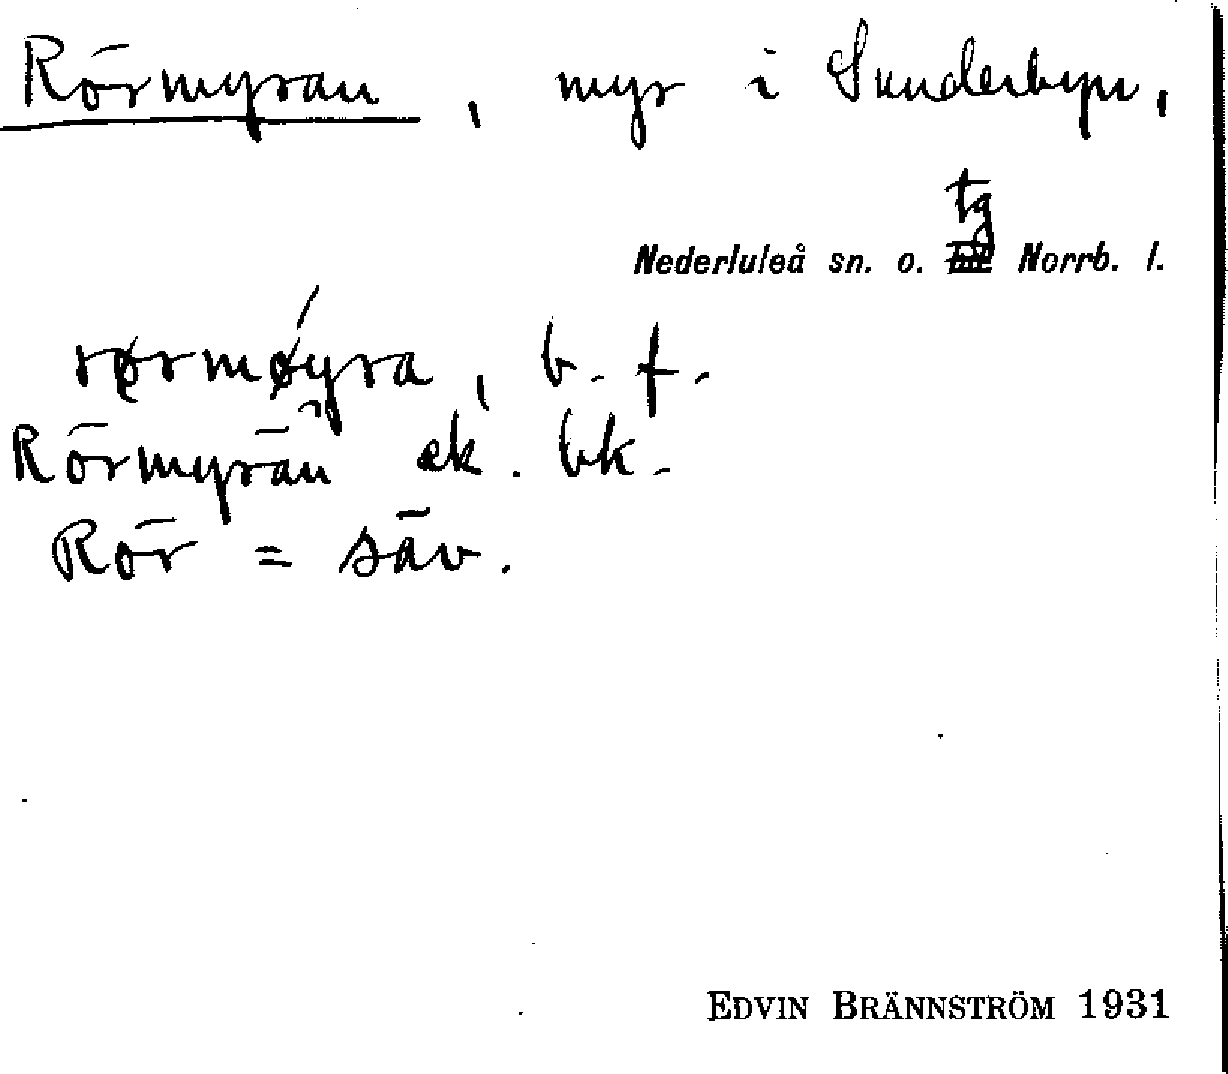 Rörmyran, myr i Sunderbyn,
tg
Nederluleå sn. o. Norrb. l.
rørmøyra, b. f.
Rörmyran ek. bk.
Rör = säv.
EDVIN BRÄNNSTRÖM 1931